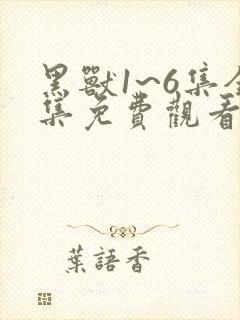 黑獸1~6集全
集免費觀看
葉語香